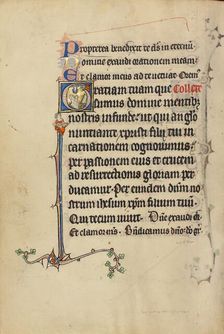 Propterea benedixit te deus in eternum
Domine exaudi orationem meam
Et clamor meus ad te veniat Oremus
Gratiam tuam que Collecta
sumus domine mentibus
nostris infunde: ut qui angelo
nuntiante xpisti filii tui in
carnationem cognouimus
per passionem eius et crucem
ad resurrectionis gloriam per
ducamur. Per eundem dominum nos
trum ihesum xpistum filium tuum
Qui tecum uiuit. Domine exaudi et
Et clamor meus. Benedicamus domino. deo gras